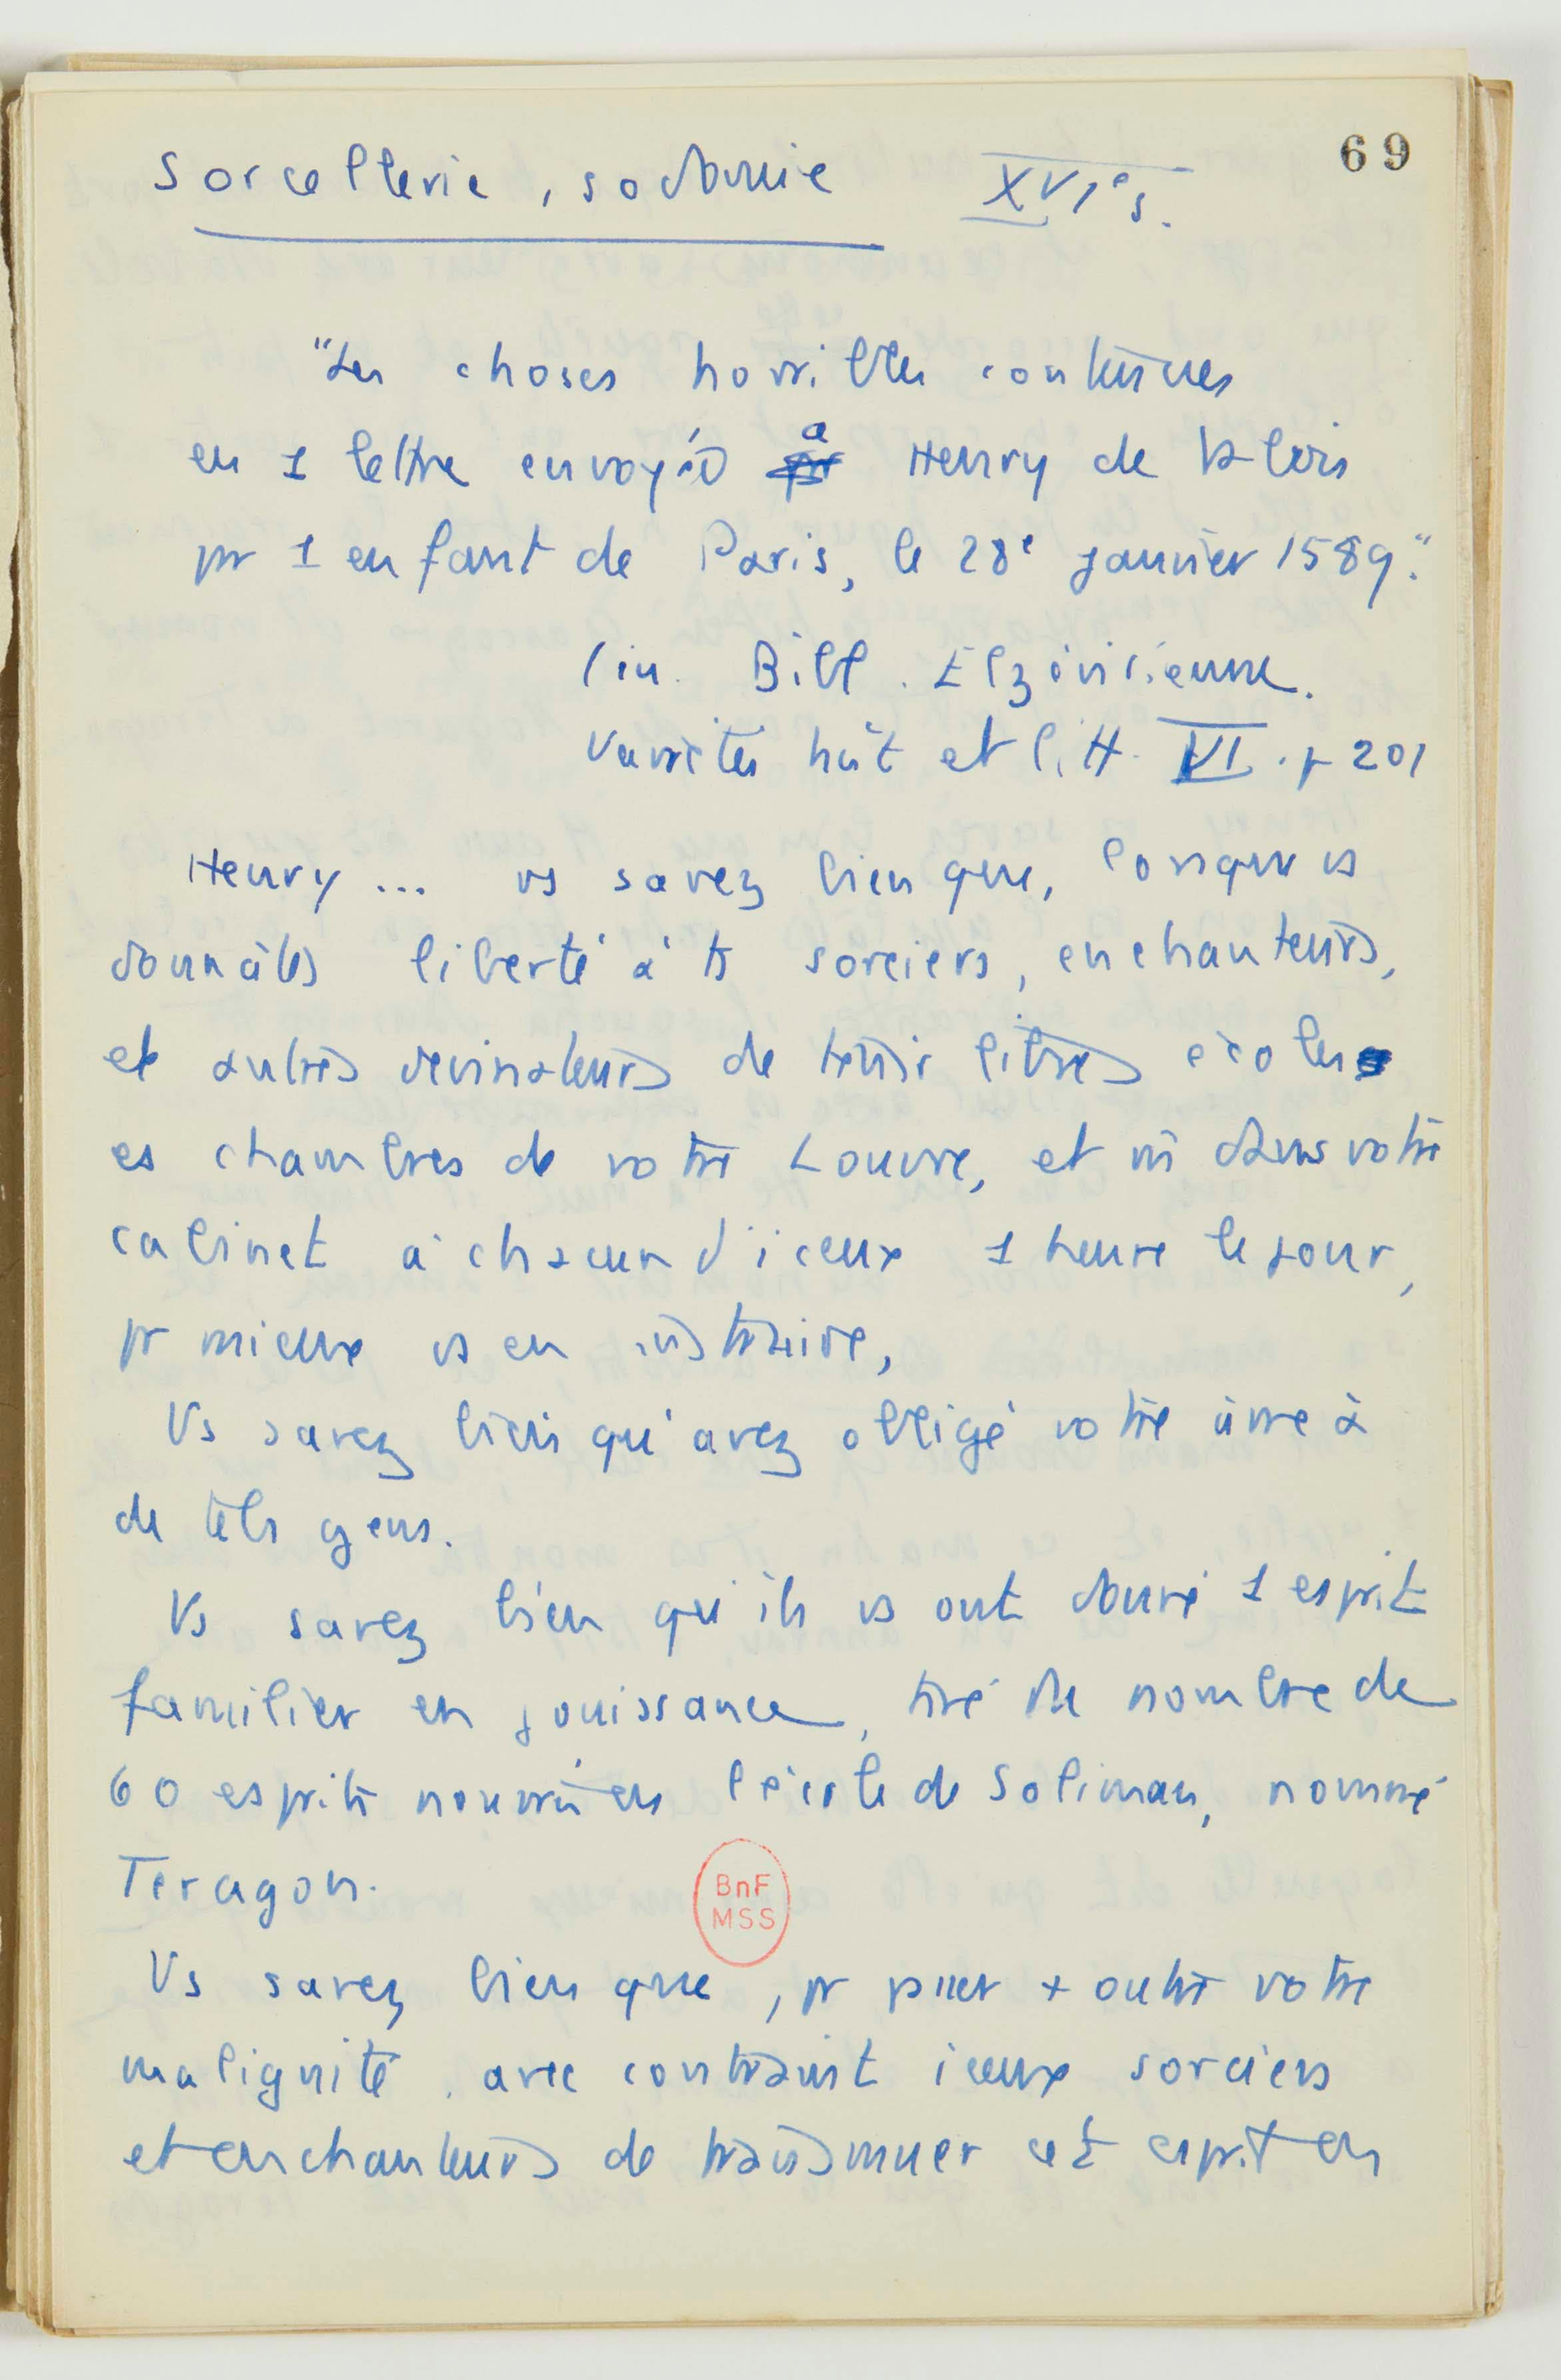 69
Sorcellerie, sodomie XVIe s.
"Les choses horribles contenues
en 1 lettre envoyée à Henry de Valois
pr 1 enfant de Paris, le 28e janvier 1589."
(in. Bibl. Elzévirienne.
Variétés hist et litt. VI. p 201
Henry ... vs savez bien que, lorsque vs
donnâtes liberté à ts sorciers, enchanteurs,
et autres devinateurs de tenir libres écoles
es chambres de votre Louvre, et mê dans votre
cabinet à chacun d'iceux 1 heure le jour,
pr mieux vs en instruire,
Vs savez bien qu'avez obligé votre âme à
de tels gens.
Vs savez bien qu'ils vs ont donné 1 esprit
familier en jouissance, tiré du nombre de
60 esprits nourris en l'école de Soliman, nommé
Teragon.
BnF
MSS
Vs savez bien que, pr passer + outre votre
malignité. avec contraint iceux sorciers
et enchanteurs de transmuer cet esprit en